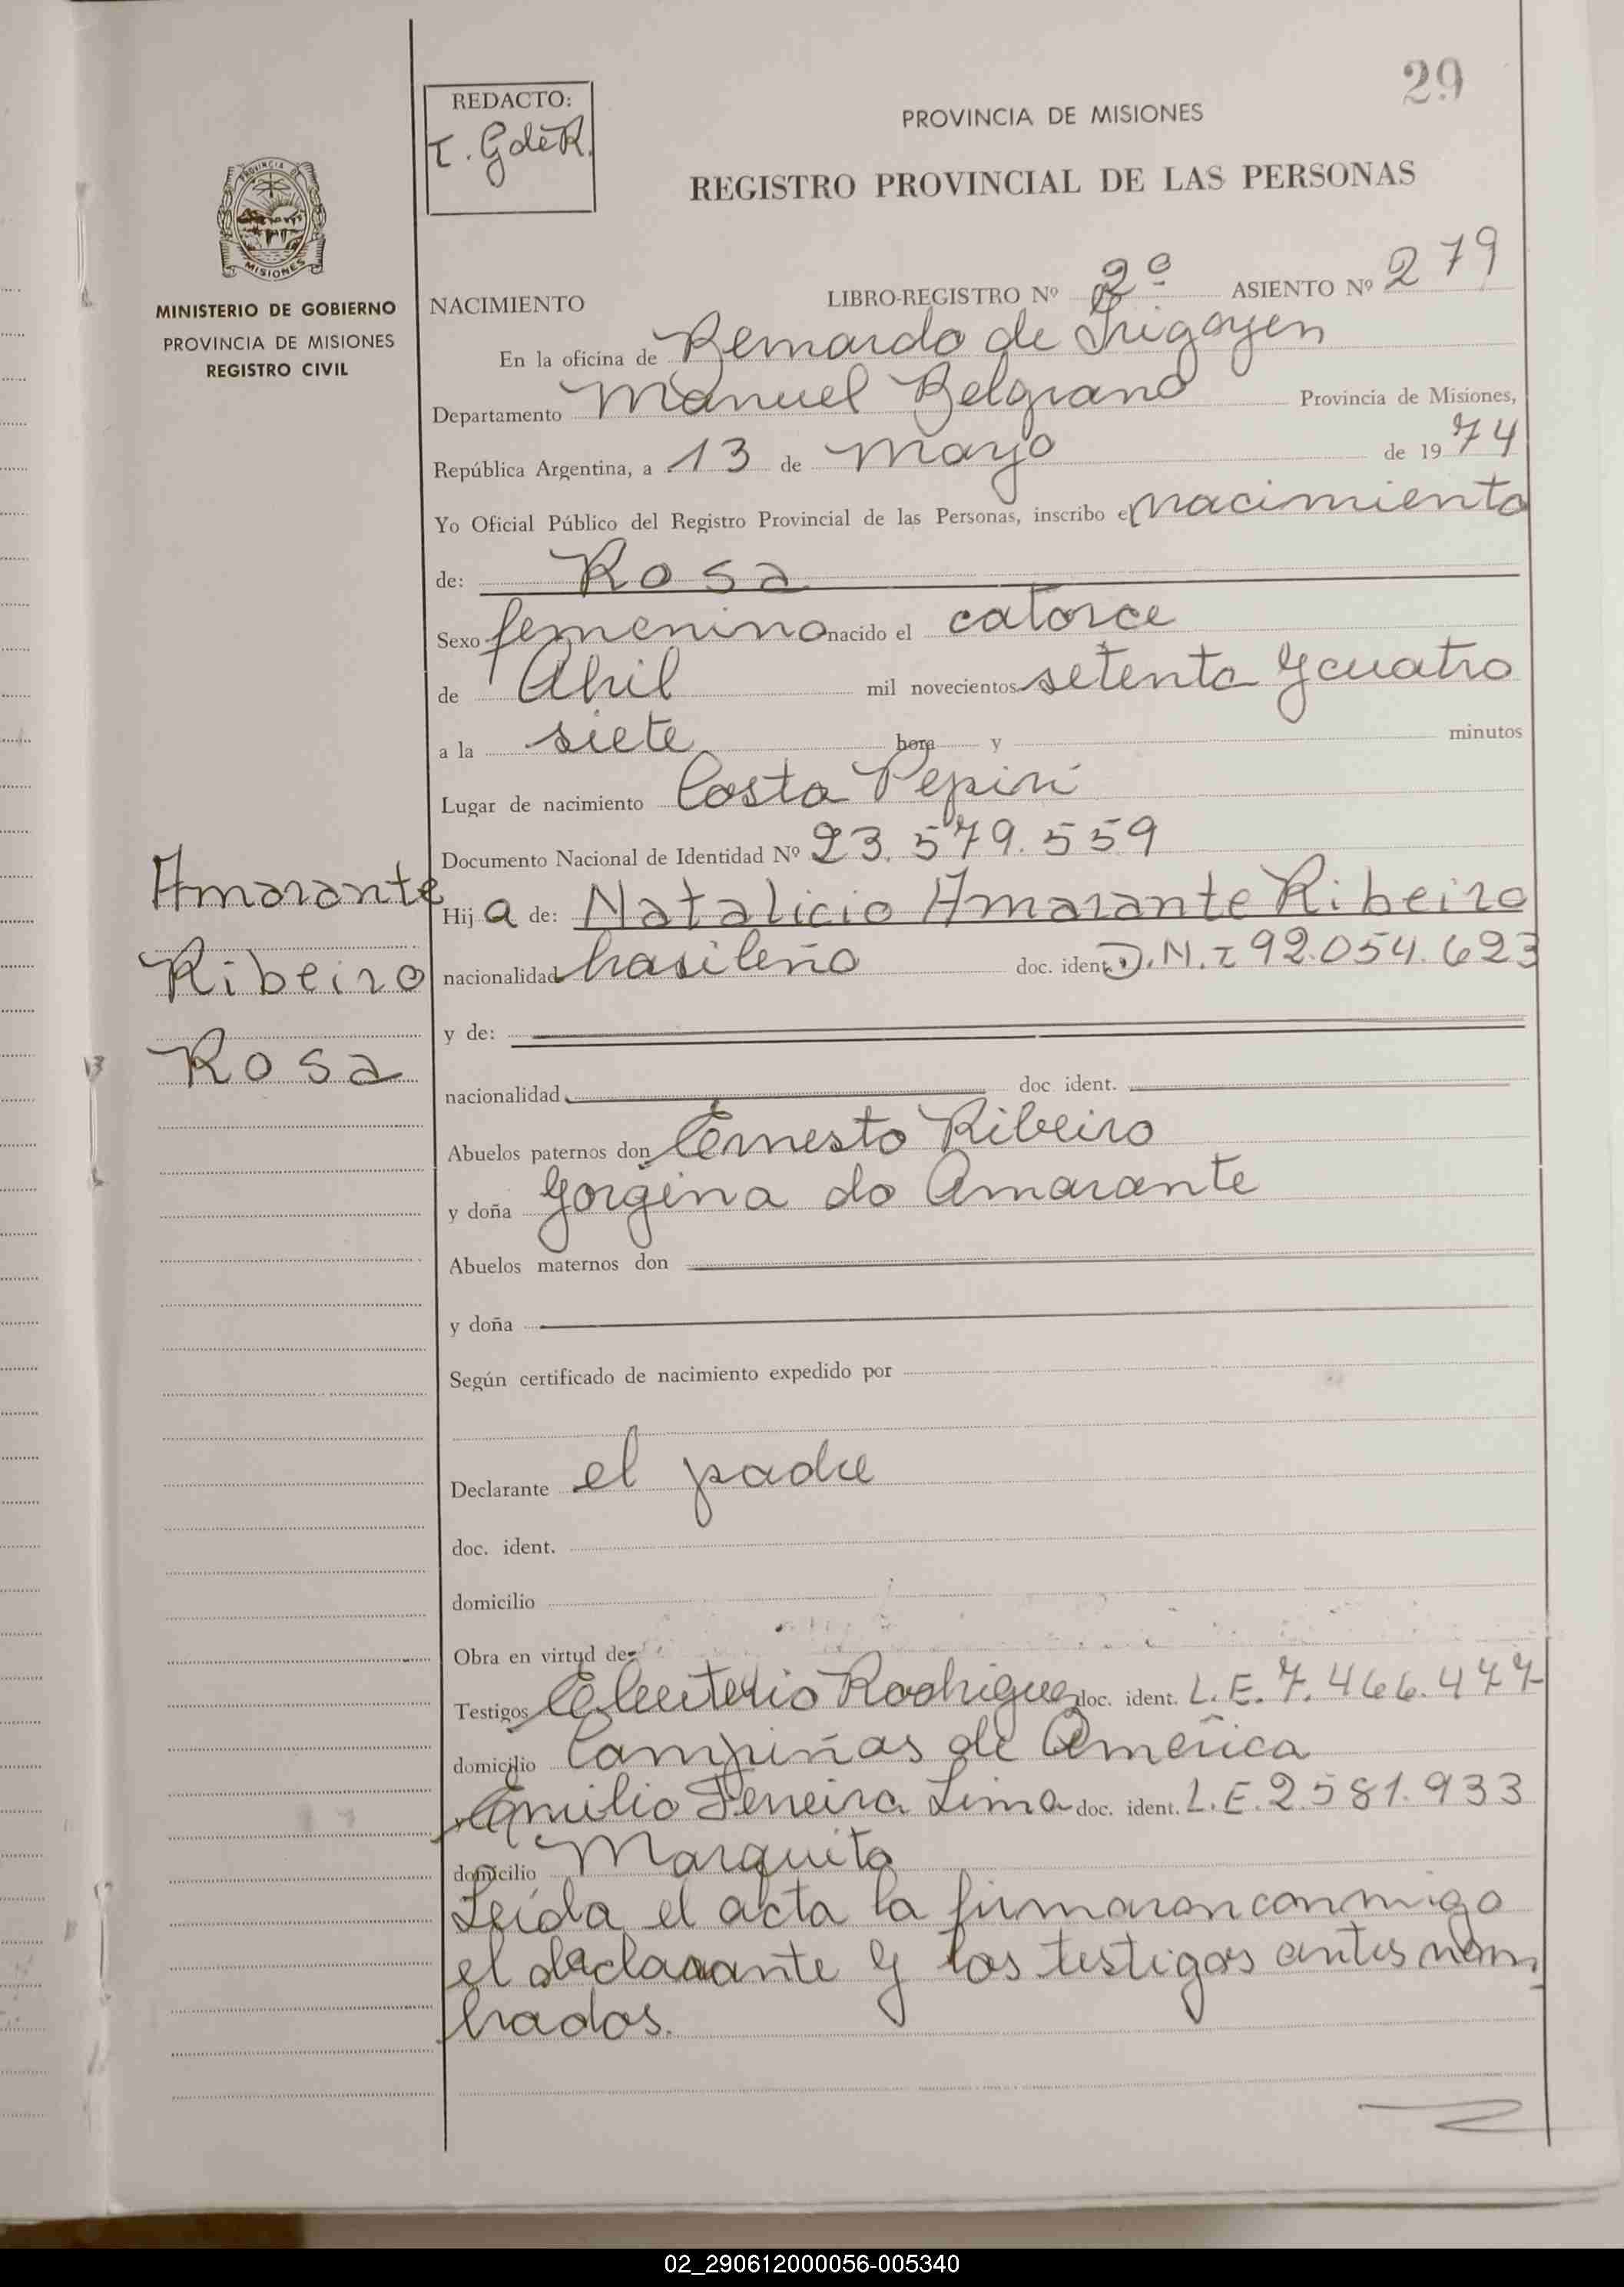 29
REDACTO:
T. G de R.
PROVINCIA DE MISIONES
REGISTRO PROVINCIAL DE LAS PERSONAS
PROVINCIA DE
MISIONES
MINISTERIO DE GOBIERNO
PROVINCIA DE MISIONES
REGISTRO CIVIL
NACIMIENTO LIBRO-REGISTRO Nº 2º ASIENTO Nº 279
En la oficina de Bernardo de Irigoyen
Departamento Manuel Belgrano Provincia de Misiones,
República Argentina, a 13 de Mayo de 1974
Yo Oficial Público del Registro Provincial de las Personas, inscribo el nacimiento
de: Rosa
Sexo femenino nacido el catorce
de Abril mil novecientos setenta y cuatro
a la siete hora y minutos
Lugar de nacimiento Costa Pepirí
Documento Nacional de Identidad Nº 23.579.559
Amarante
Ribeiro
Rosa
Hija de: Natalicio Amarante Ribeiro
nacionalidad brasileño doc. ident. D.N.I 92.054.623
y de:
nacionalidad doc. ident.
Abuelos paternos don Ernesto Ribeiro
y doña Gorgina do Amarante
Abuelos maternos don
y doña
Según certificado de nacimiento expedido por
Declarante el padre
doc. ident.
domicilio
Obra en virtud de
Testigos Eleuterio Rodriguez doc. ident. L.E. 7.466.477
domicilio Campiñas de América
Emilio Ferreira Lima doc. ident. L.E. 2.581.933
domicilio Marquita
Leída el acta la firmaron conmigo
el declarante y los testigos antes nom
brados.
02_290612000056-005340